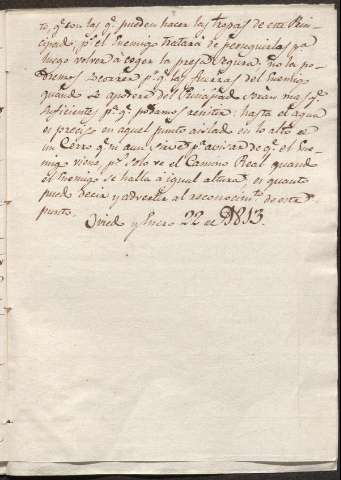 te, q.e son las q.e pueden hacer las tropas de este Prin-
cipad. p.r q.e el Enemigo tratará de perseguirlas y a
luego volverá à coger la presa segura, q.e no la po-
dremos socorrer p.r q.e las fuerzas del Enemigo
quand. se apodere del Principad. serán mas q.e
suficientes p.a q.e podamos resistir: hasta el agua
es preciso en aquel punto aislado en lo alto de
un Cerro q.e ni aun sirve p.a avisar de q.e el Ene-
migo viene, p.s solo ve el Camino Real quand.
el Enemigo se halla á igual altura; es quanto
pued. decir y advertir al reconocim.to de este
punto.
Ovied. y Enero 22 de 1813.